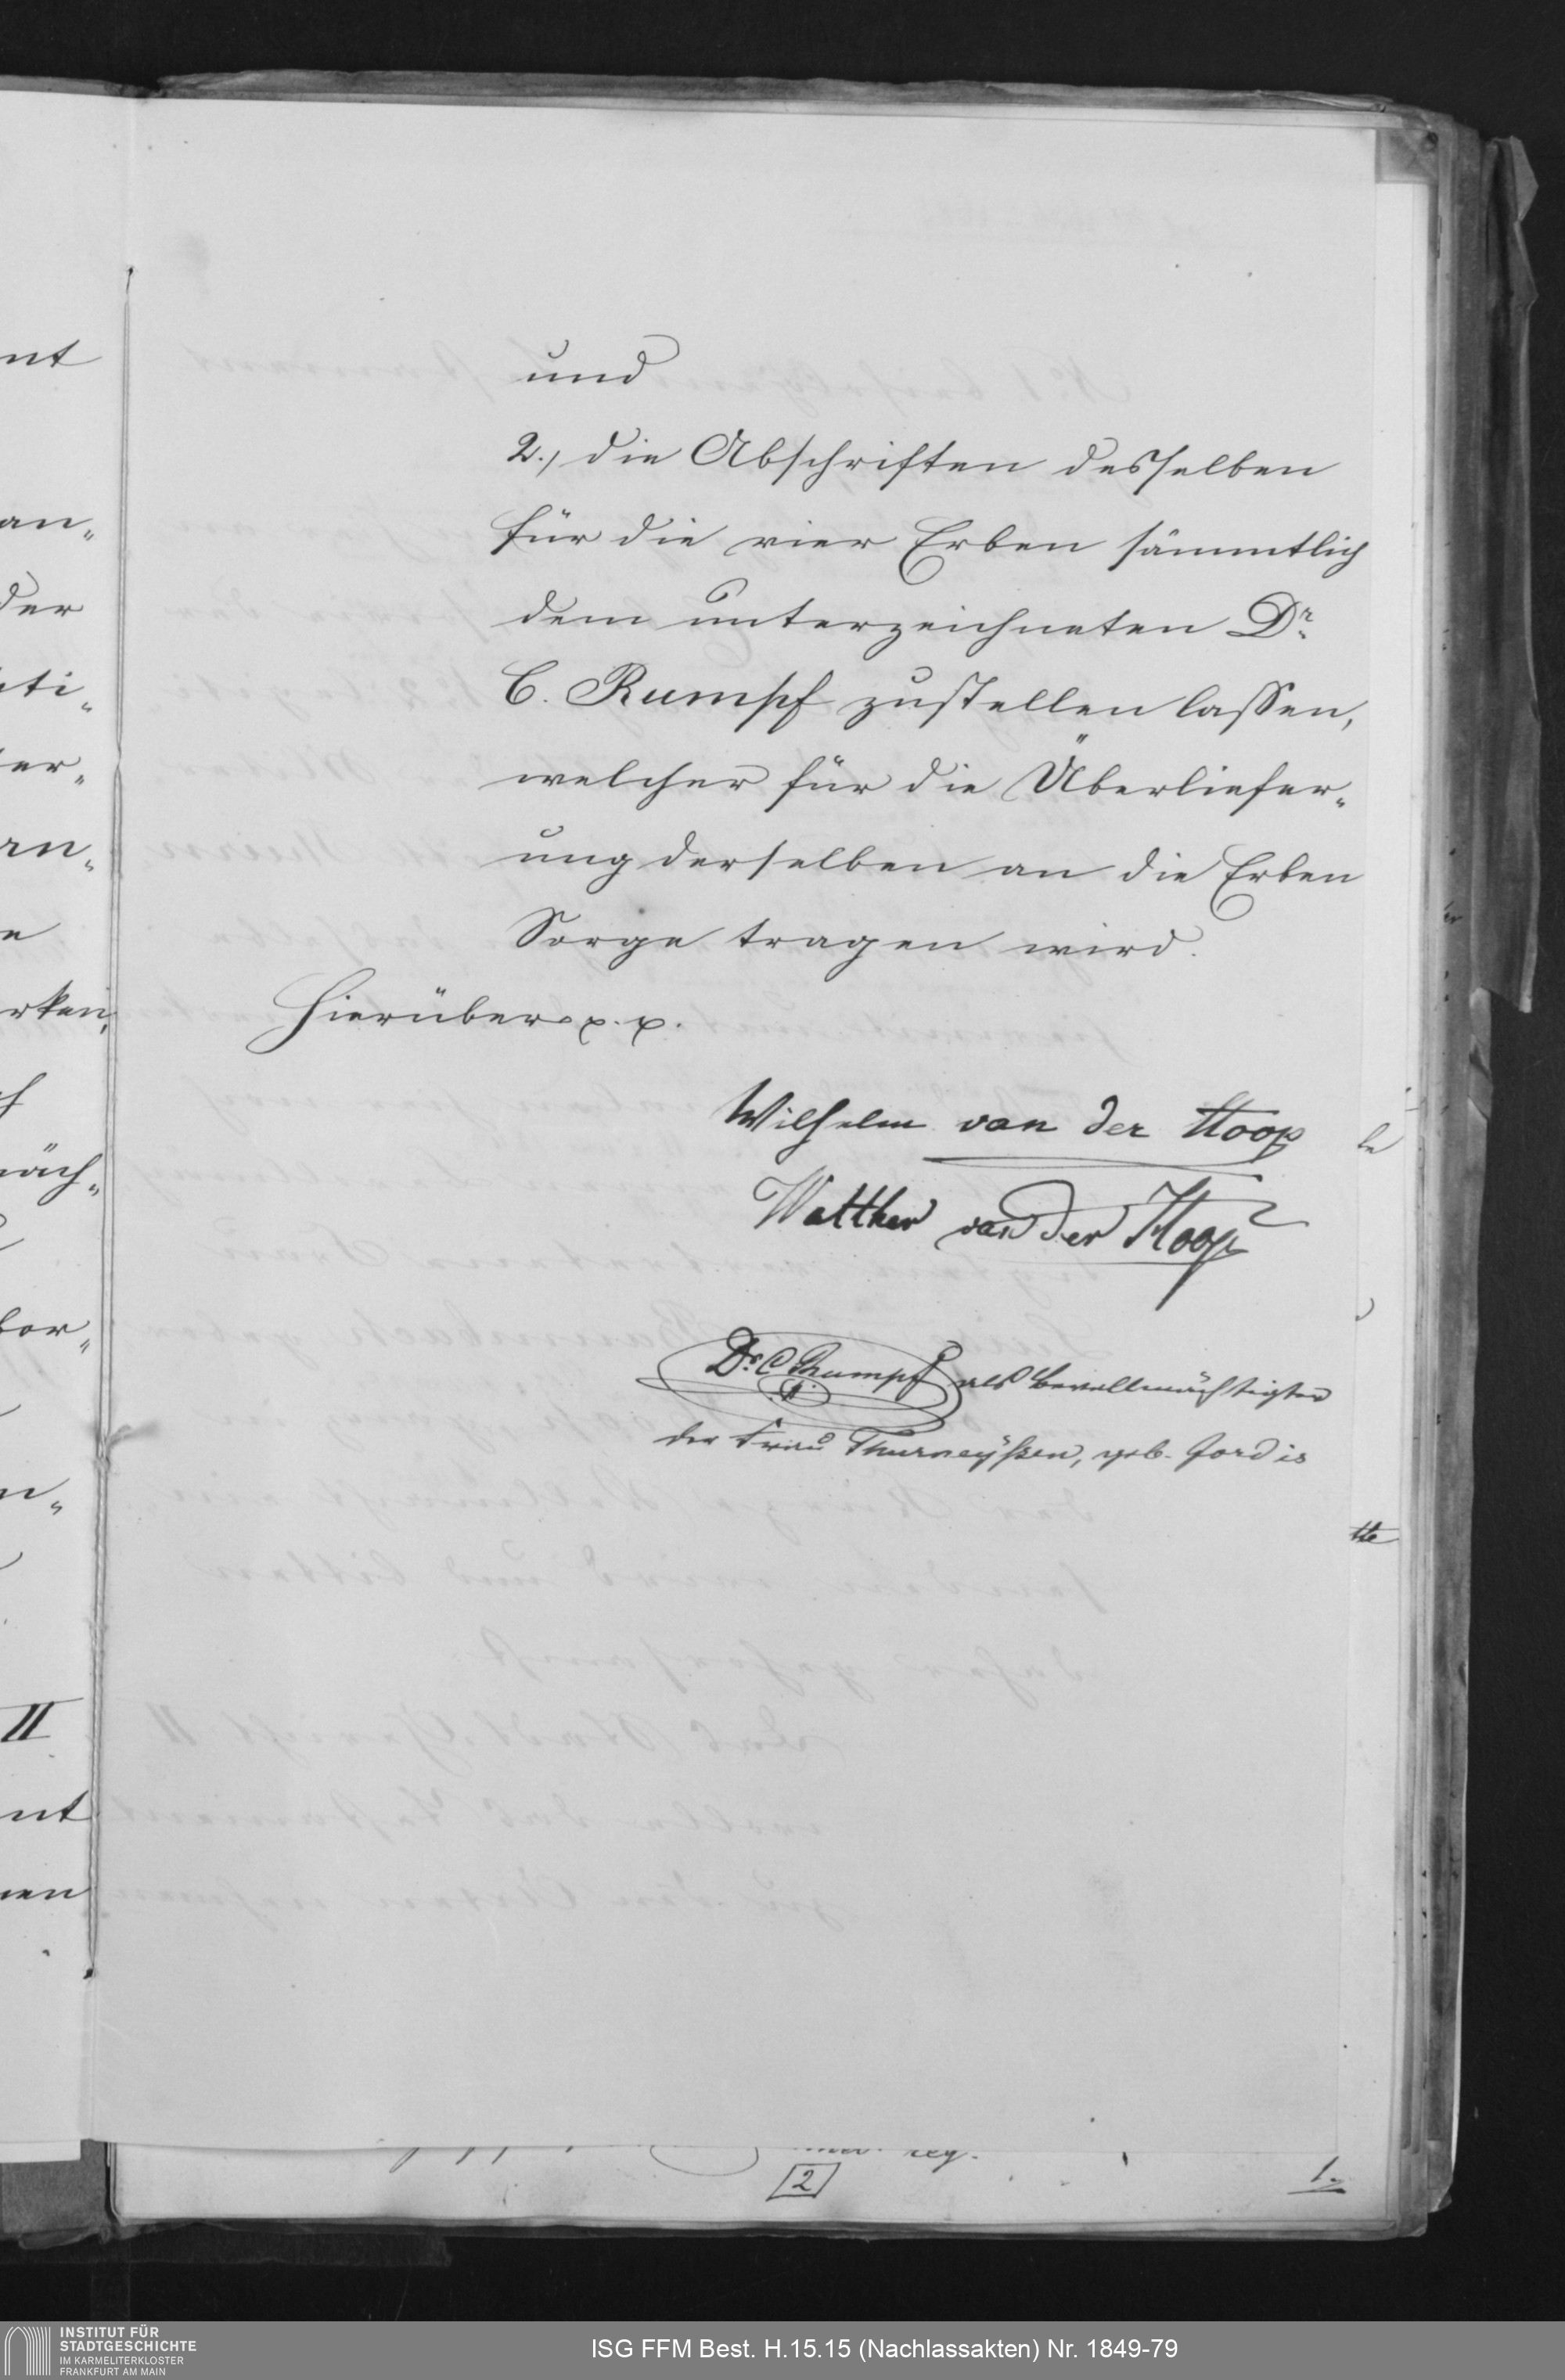 nt
an„
der
ati„
er„
an„
e
rken,
näch„
bor„
n„
II
nt
nen
und
2., die Abschriften desselben
für die vier Erben sämmtlich
dem unterzeichneten Dr.
C. Rumpf zustellen lassen,
welcher für die Überliefer„
ung derselben an die Erben
Sorge tragen wird.
Hierüber p. p.
Wilhelm van der Hoop
Walther van der Hoop
Dr. C Rumpf als Bevollmächtigter
der Frau Thurneyßen, geb. Jordis
le
tte
reg.
2
1.
INSTITUT FÜR
STADTGESCHICHTE
IM KARMELITERKLOSTER
FRANKFURT AM MAIN
ISG FFM Best. H.15.15 (Nachlassakten) Nr. 1849-79